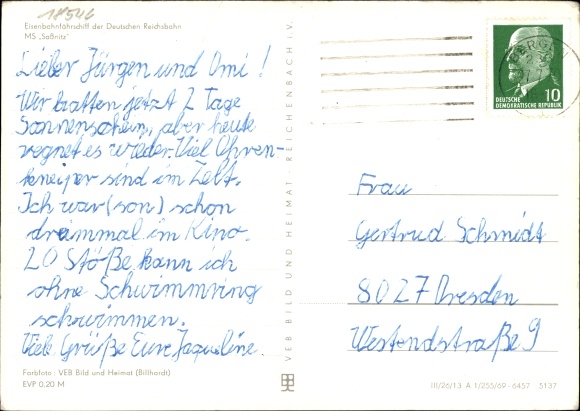 18546
Eisenbahnfährschiff der Deutschen Reichsbahn
MS „Saßnitz"
Lieber Jürgen und Omi!
Wir hatten jetzt 2 Tage
Sonnenschein, aber heute
regnet es wieder. Viel Ohren-
kneiper sind im Zelt.
Ich war (son) schon
dreimmal im Kino.
20 Stöße kann ich
ohne Schwimmring
schwimmen.
Viele Grüße Eure Jaqueline.
Farbfoto: VEB Bild und Heimat (Billhardt)
EVP 0.20 M
VEB BILD UND HEIMAT · REICHENBACH i. V.
BERGEN
10
DEUTSCHE
DEMOKRATISCHE REPUBLIK
Frau
Gertrud Schmidt
8027 Dresden
Westendstraße 9
III/26/13 A 1/255/69 - 6457 5137